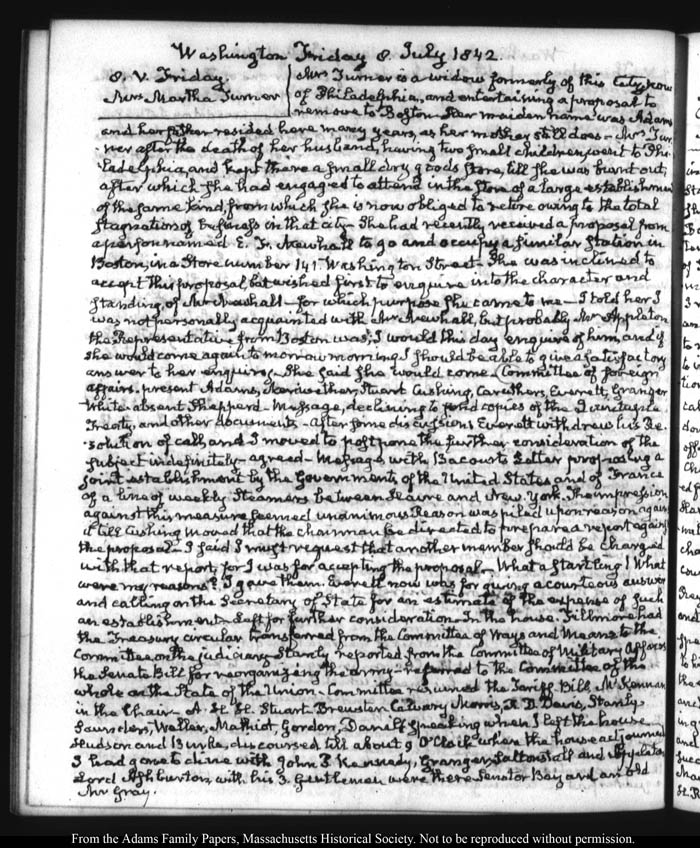 Washington Friday 8. July 1842.
8. V. Friday
Mrs Martha Turner
Mrs Turner is a widow formerly of this City, now
of Philadelphia, and entertaining a proposal to
remove to Boston. Her maiden name was Adams
and her father resided here many years, as her mother still does – Mrs Tur-
-ner after the death of her husband, having two small children, went to Phi-
-ladelphia, and kept there a small dry goods store, till she was burnt out,
after which she had engaged to attend in the store of a large establishment
of the same kind, from which she is now obliged to retire owing to the total
stagnation of business in that city. She had recently received a proposal from
a person named E. F. Newhall to go and occupy a similar station in
Boston, in a Store number 141. Washington Street – She was inclined to
accept this proposal, but wished first to enquire into the character and
standing, of Mr Newhall – for which purpose she came to me – I told her I
was not personally acquainted with Mr Newhall, but probably Mr Appleton
the Representative from Boston was; I would this day enquire of him, and if
she would come again to morrow morning, I should be able to give a satisfactory
answer to her enquiry. She said she would come. Committee of foreign
affairs. present Adams, Meriwether, Stuart Cushing, Caruthers, Everett, Granger
White. absent Shepperd – Message, declining to send copies of the Quintuple
Treaty, and other documents – after some discussion, Everett withdrew his Re-
-solution of call, and I moved to postpone the further consideration of the
subject indefinitely – agreed – Message with Bacourt's Letter proposing a
joint establishment by the Governments of the United States and of France
of a line of weekly Steamers between Havre and New-York. The impression
against this measure seemed unanimous Reason was piled upon reason against
it till Cushing moved that the chairman be directed to prepare a report against
the proposal – I said I must request that another member should be charged
with that report, for I was for accepting the proposal – What a startling! What
were my reasons? I gave them. Everett now was for giving a courteous answer
and calling on the Secretary of State for an estimate of the expense of such
an establishment – Left for further consideration – In the house. Fillmore had
the Treasury circular transferred from the Committee of Ways and Means to the
Committee on the judiciary – Stanly reported from the Committee of Military Affairs
the Senate Bill for reorganizing the army – referred to the Committee of the
whole on the State of the Union – Committee resumed the Tariff Bill, McKennan
in the Chair – A. H. H. Stuart Brewster Calvary Morris, R. D. Davis, Stanly,
Saunders, Weller, Mathiot, Gordon, Daniel speaking when I left the house
Hudson and Burke, discoursed till about 9 O'Clock when the house adjourned
I had gone to dine with John P. Kennedy, Granger, Saltonstall and Appleton
Lord Ashburton, with his 3. Gentlemen were there Senator Bayard an old
Mr Gray.
From the Adams Family Papers, Massachusetts Historical Society. Not to be reproduced without permission.